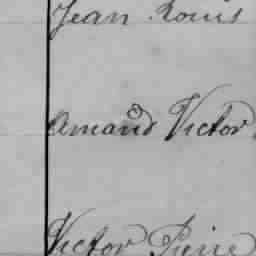 Jean Louis
Amand Victor
Victor Pierre